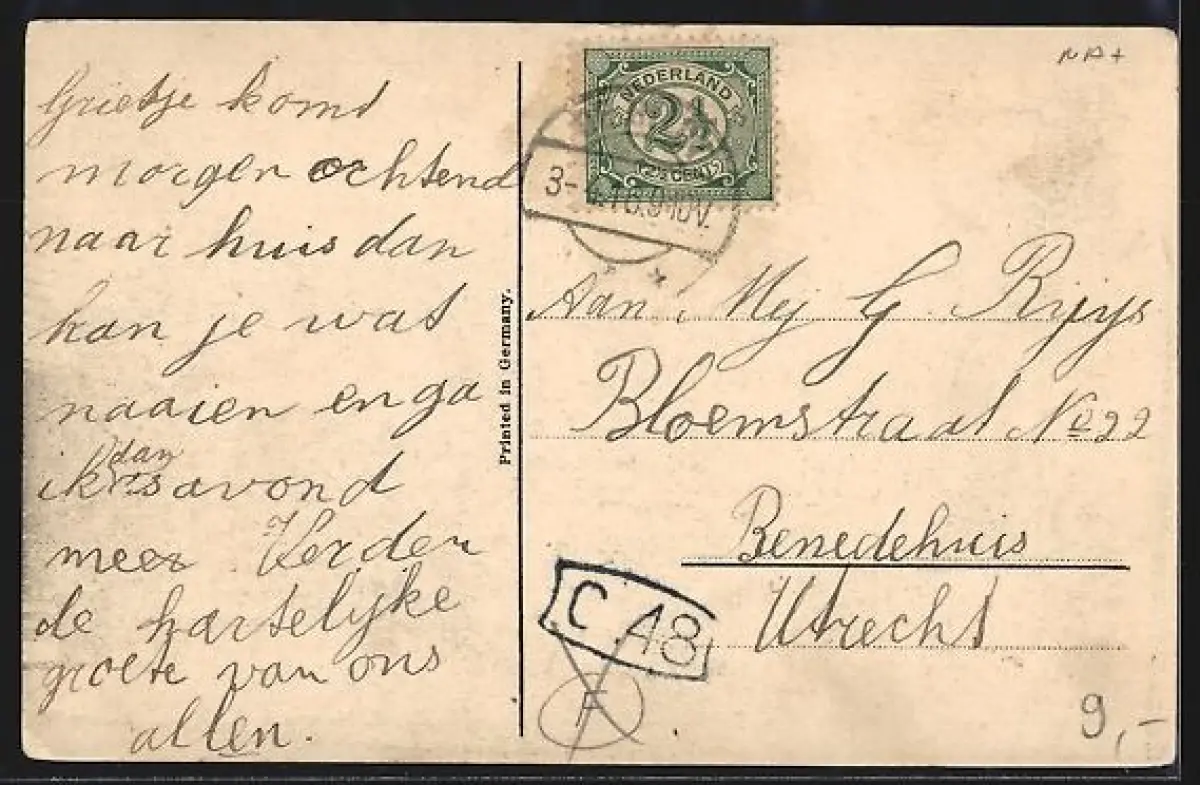 Grietje komt
morgen ochtend
naar huis dan
kan je wat
naaien en ga
dan
ik s avond
meer Verder
de hartelijke
groete van ons
allen.
Printed in Germany.
NEDERLAND
2½
(2½ CENT)
9-10V.
Aan Mej G Rijys
Bloemstraat No 22
Benedehuis
Utrecht
C A8
F
9,-